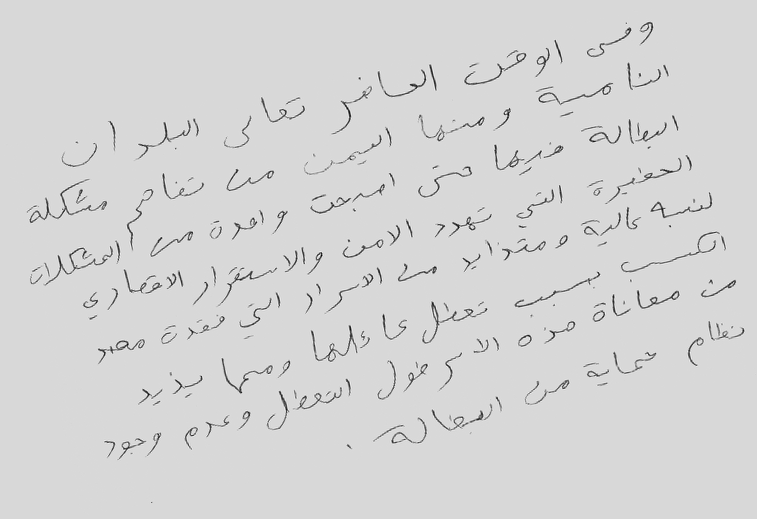 وفى الوقت الحاضر تعانى البلدان
النامية ومنها اليمن من تفاقم مشكلة
البطالة فيها حتى اصبحت واحدة من المشكلات
الخطيرة التي تهدد الامن والاستقرار الاقتصادي
لنسبه عالية ومتذايد من الاسر التي فقدة مصدر
الكسب بسبب تعطل عائلها ومما يذيد
من معاناة هذه الاسر طول التعطل وعدم وجود
نظام حماية من البطالة.